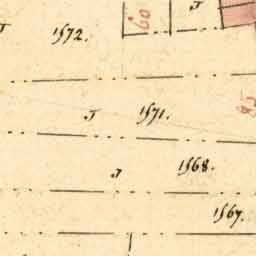 J
J 1572. 60
J 1571. 85
J 1568.
1567.